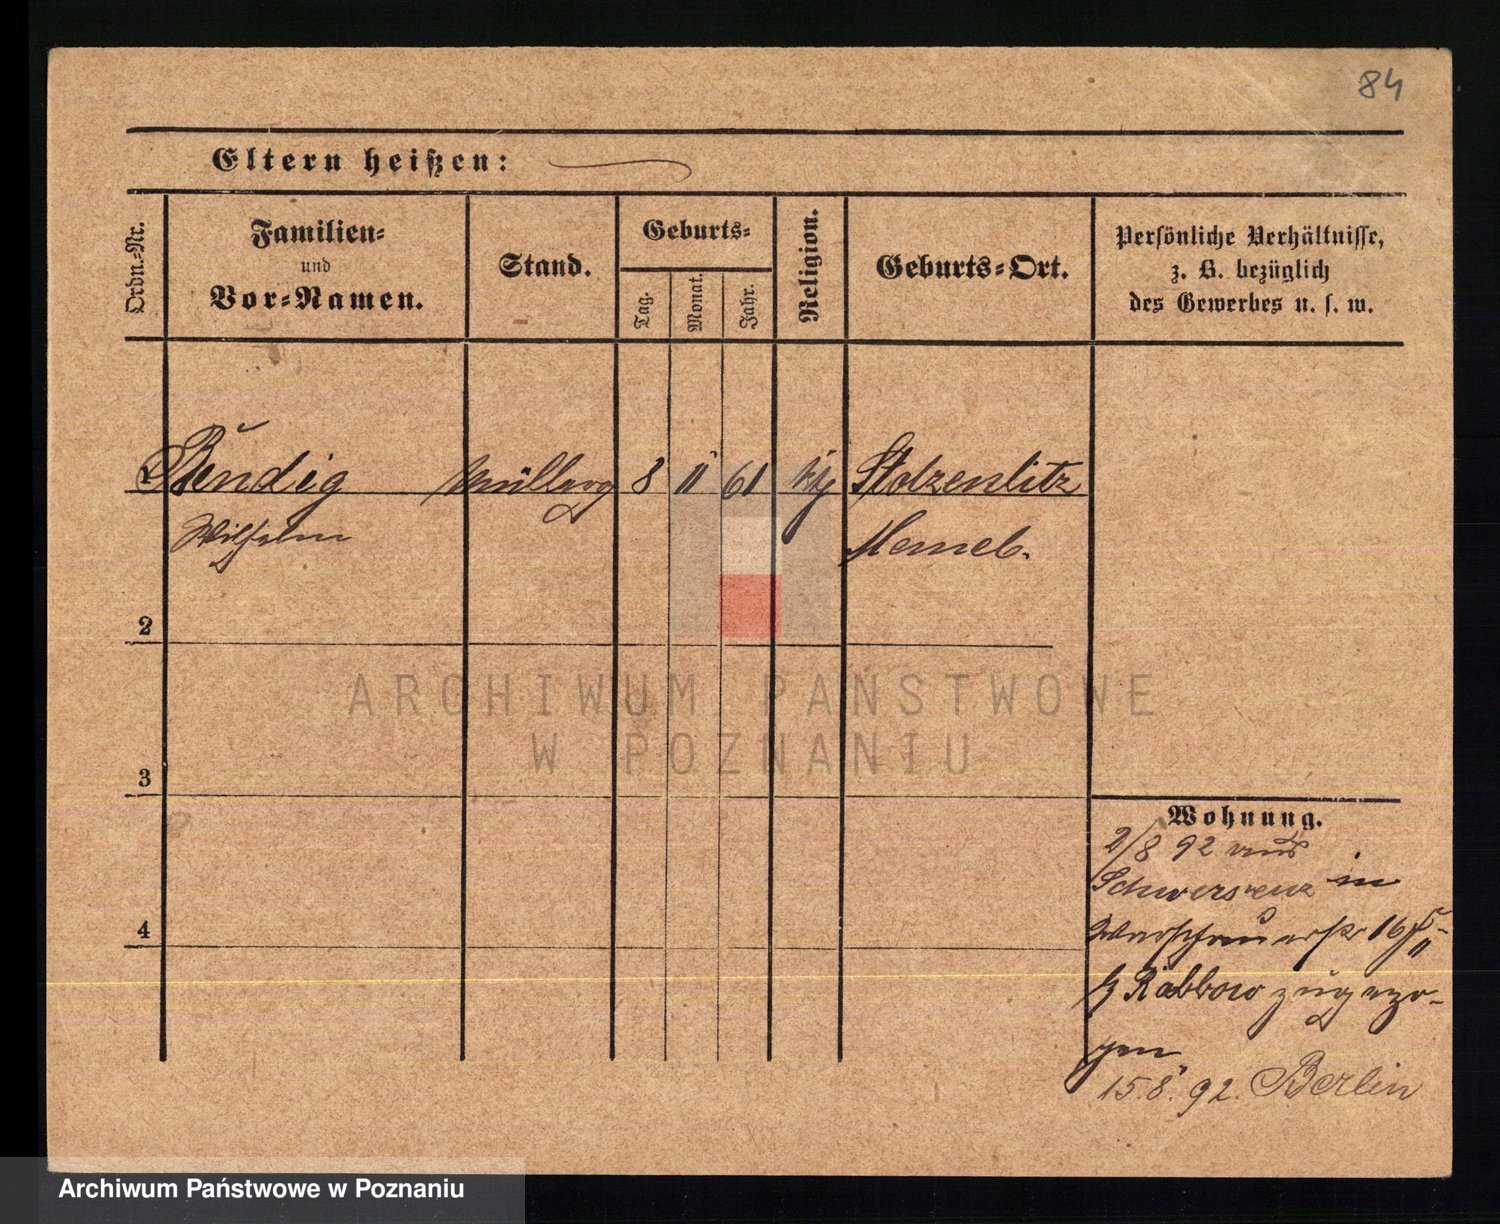 84
Eltern heißen:
Ordn.-Nr.
Familien-
und
Vor-Namen.
Stand.
Geburts-
Tag.
Monat.
Jahr.
Religion.
Geburts-Ort.
Persönliche Verhältnisse,
z. B. bezüglich
des Gewerbes u. s. w.
Bendig 8 11 61
Wilhelm Memel.
2
3
4
Wohnung.
2/8 92 aus
Schwersenz in
Warschauerstr 16
Rabbow zugezo-
gen
15.8. 92. Berlin
ARCHIWUM PAŃSTWOWE
W POZNANIU
Archiwum Państwowe w Poznaniu